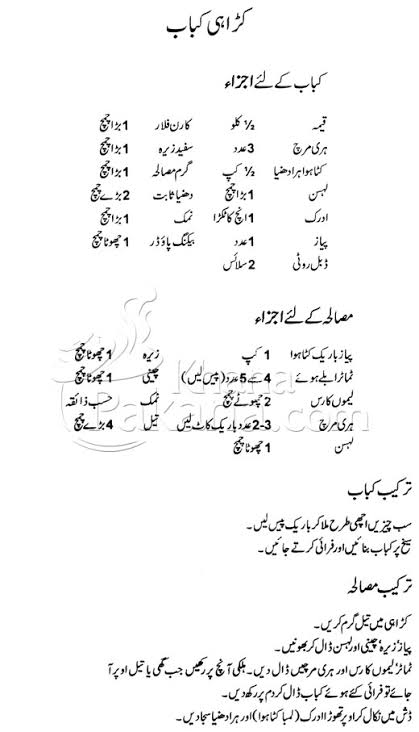 کڑاہی کباب
کباب کے لئے اجزاء
قیمہ ½ کلو کارن فلار 1 بڑا چمچ
ہری مرچ 3 عدد سفید زیرہ 1 بڑا چمچ
کٹا ہوا ہرا دھنیا ½ کپ گرم مصالحہ 1 بڑا چمچ
لہسن 1 بڑا چمچ دھنیا ثابت 2 بڑے چمچ
ادرک 1 انچ کا ٹکڑا نمک 1 بڑا چمچ
پیاز 1 عدد بیکنگ پاؤڈر 1 چھوٹا چمچ
ڈبل روٹی 2 سلائس
مصالحہ کے لئے اجزاء
پیاز باریک کٹا ہوا 1 کپ زیرہ 1 چھوٹا چمچ
ٹماٹر ابلے ہوئے 4 سے 5 عدد (پیس لیں) چینی 1 چھوٹا چمچ
لیموں کا رس 2 چھوٹے چمچ نمک حسب ذائقہ
ہری مرچ 2-3 عدد باریک کاٹ لیں تیل 4 بڑے چمچ
لہسن 1 چھوٹا چمچ
Khana
Pakana.com
ترکیب کباب
سب چیزیں اچھی طرح ملا کر باریک پیس لیں۔
سیخ پر کباب بنائیں اور فرائی کرتے جائیں۔
ترکیب مصالحہ
کڑاہی میں تیل گرم کریں۔
پیاز، زیرہ، چینی اور لہسن ڈال کر بھونیں۔
ٹماٹر، لیموں کا رس اور ہری مرچیں ڈال دیں۔ ہلکی آنچ پر رکھیں جب گھی یا تیل اوپر آ
جائے تو فرائی کئے ہوئے کباب ڈال کر دم پر رکھ دیں۔
ڈش میں نکال کر اوپر تھوڑا ادرک (لمبا کٹا ہوا) اور ہرا دھنیا سجا دیں۔